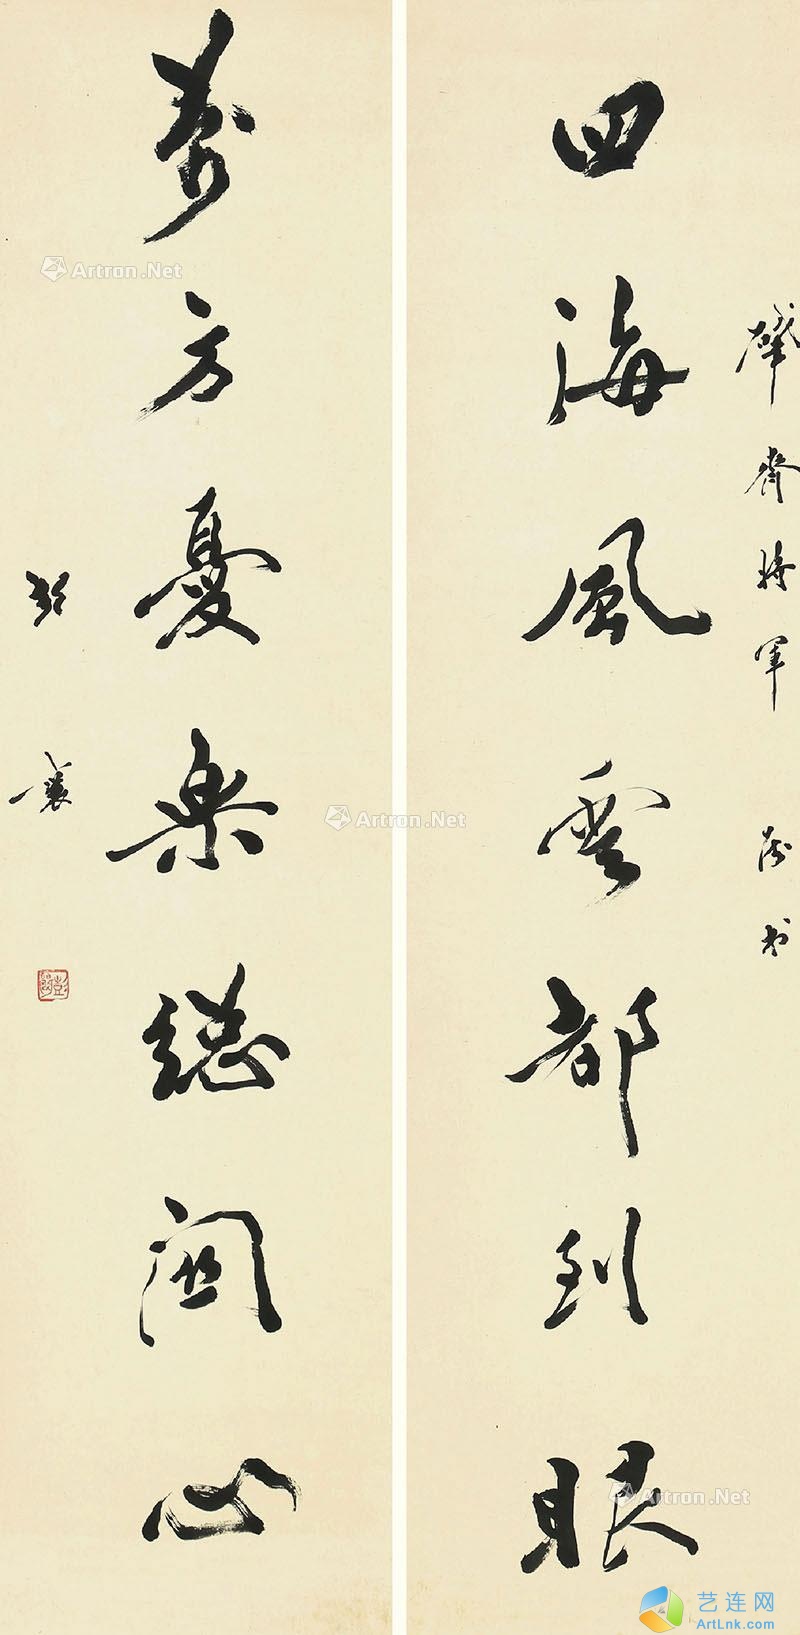 肇齊將軍
四海風雲都到眼
萬方憂樂總關心
彭襄
Artron.Net
Artron.Net
Artron.Net
艺连网
ArtLnk.com